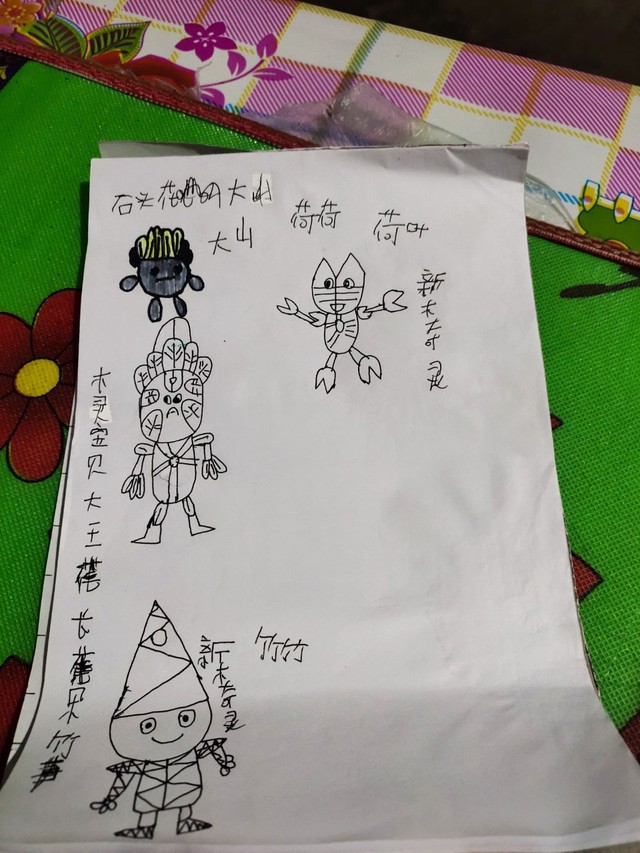 石头花的大山
大山
荷荷
荷叶
新木奇灵
木灵宝贝大王
长 果竹
新木奇灵
竹竹